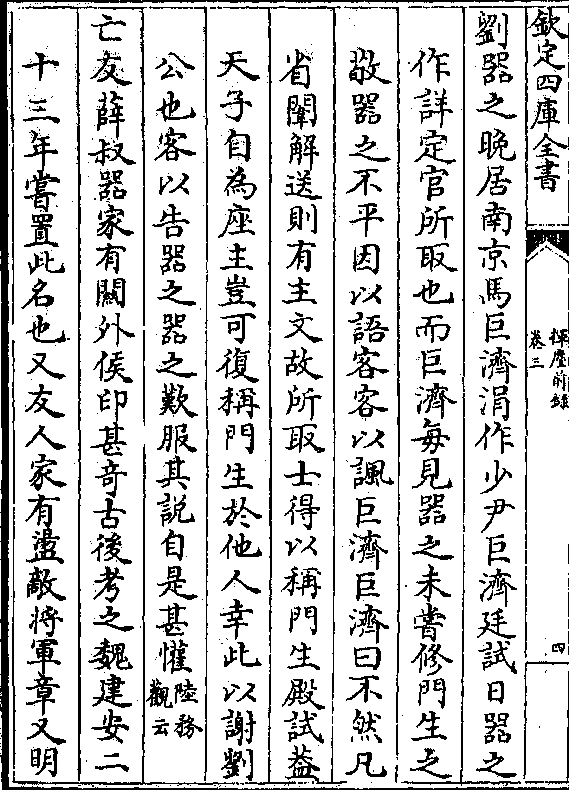 欽定四庫全書
揮麈前錄
卷三
四
劉器之晚居南京馬巨濟涓作少尹巨濟廷試日器之
作詳定官所取也而巨濟每見器之未嘗修門生之
敬器之不平因以語客客以諷巨濟巨濟曰不然凡
省闈解送則有主文故所取士得以稱門生殿試蓋
天子自為座主豈可復稱門生於他人幸此以謝劉
公也客以告器之器之歎服其說自是甚懽陸務觀云
亡友薛叔器家有關外侯印甚奇古後考之魏建安二
十三年嘗置此名也又友人家有盪敵將軍章又明